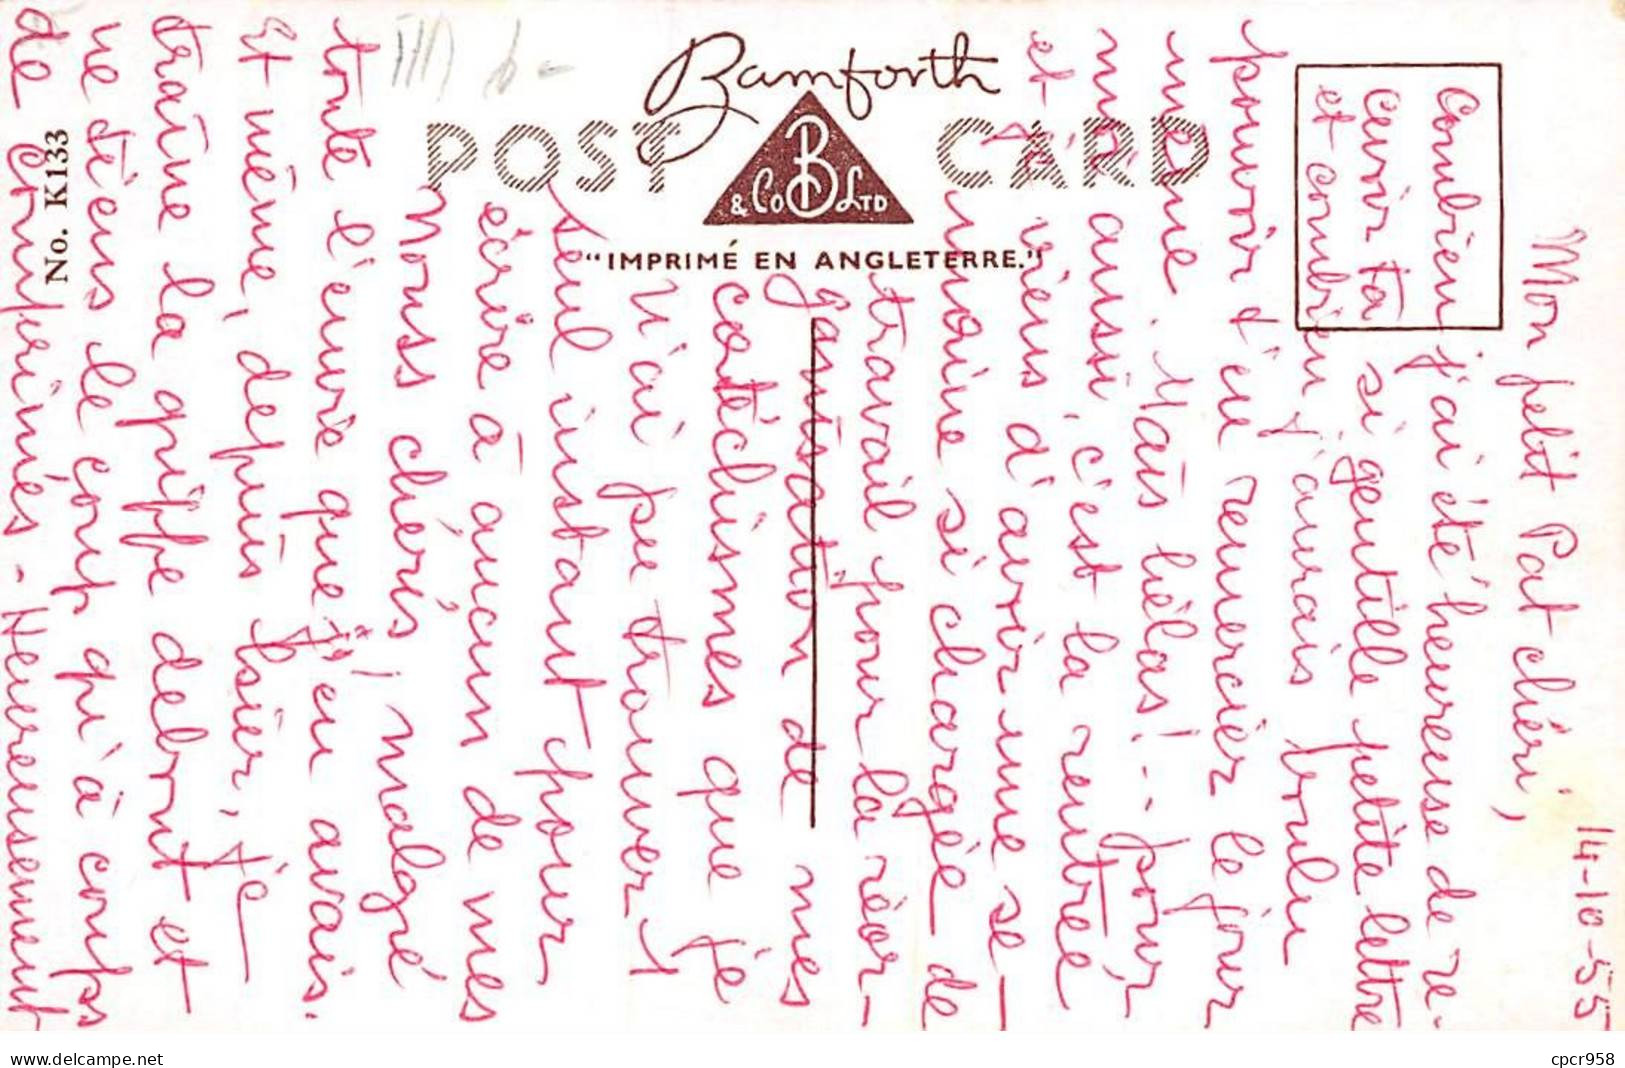 14-10-55
Mon petit Pat chéri,
Combien j'ai été heureuse de re-
cevoir ta si gentille petite lettre
et combien j'aurais voulu
pouvoir t'en remercier le jour
même. Mais hélas!... pour
moi aussi, c'est la rentrée
et je viens d'avoir une se-
maine si chargée de
travail pour la réor-
ganisation de mes
catéchismes que je
n'ai pu trouver 1
seul instant pour
écrire à aucun de mes
Mouss chéris, malgré
toute l'envie que j'en avais.
Et même, depuis hier, je
traîne la grippe debout et
ne tiens le coup qu'à coups
de comprimés - Heureusement
Bamforth
POST CARD
B
& Co LTD
"IMPRIMÉ EN ANGLETERRE."
No. K133
www.delcampe.net
cpcr958